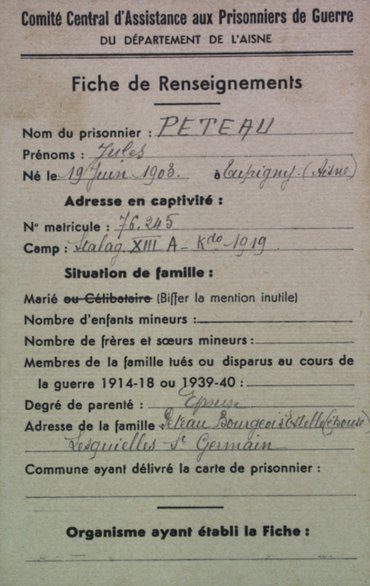 Comité Central d'Assistance aux Prisonniers de Guerre
DU DÉPARTEMENT DE L'AISNE
Fiche de Renseignements
Nom du prisonnier : PETEAU
Prénoms : Jules
Né le 19 Juin 1903. à Eupigny (Aisne)
Adresse en captivité :
N° matricule : 76.245
Camp : Stalag XIII A - Kdo 1919
Situation de famille :
Marié ou Célibataire (Biffer la mention inutile)
Nombre d'enfants mineurs :
Nombre de frères et sœurs mineurs :
Membres de la famille tués ou disparus au cours de
la guerre 1914-18 ou 1939-40 :
Degré de parenté : Epouse
Adresse de la famille : Peteau Bourgeois Estelle (épouse)
Lesquielles-St Germain
Commune ayant délivré la carte de prisonnier :
Organisme ayant établi la Fiche :